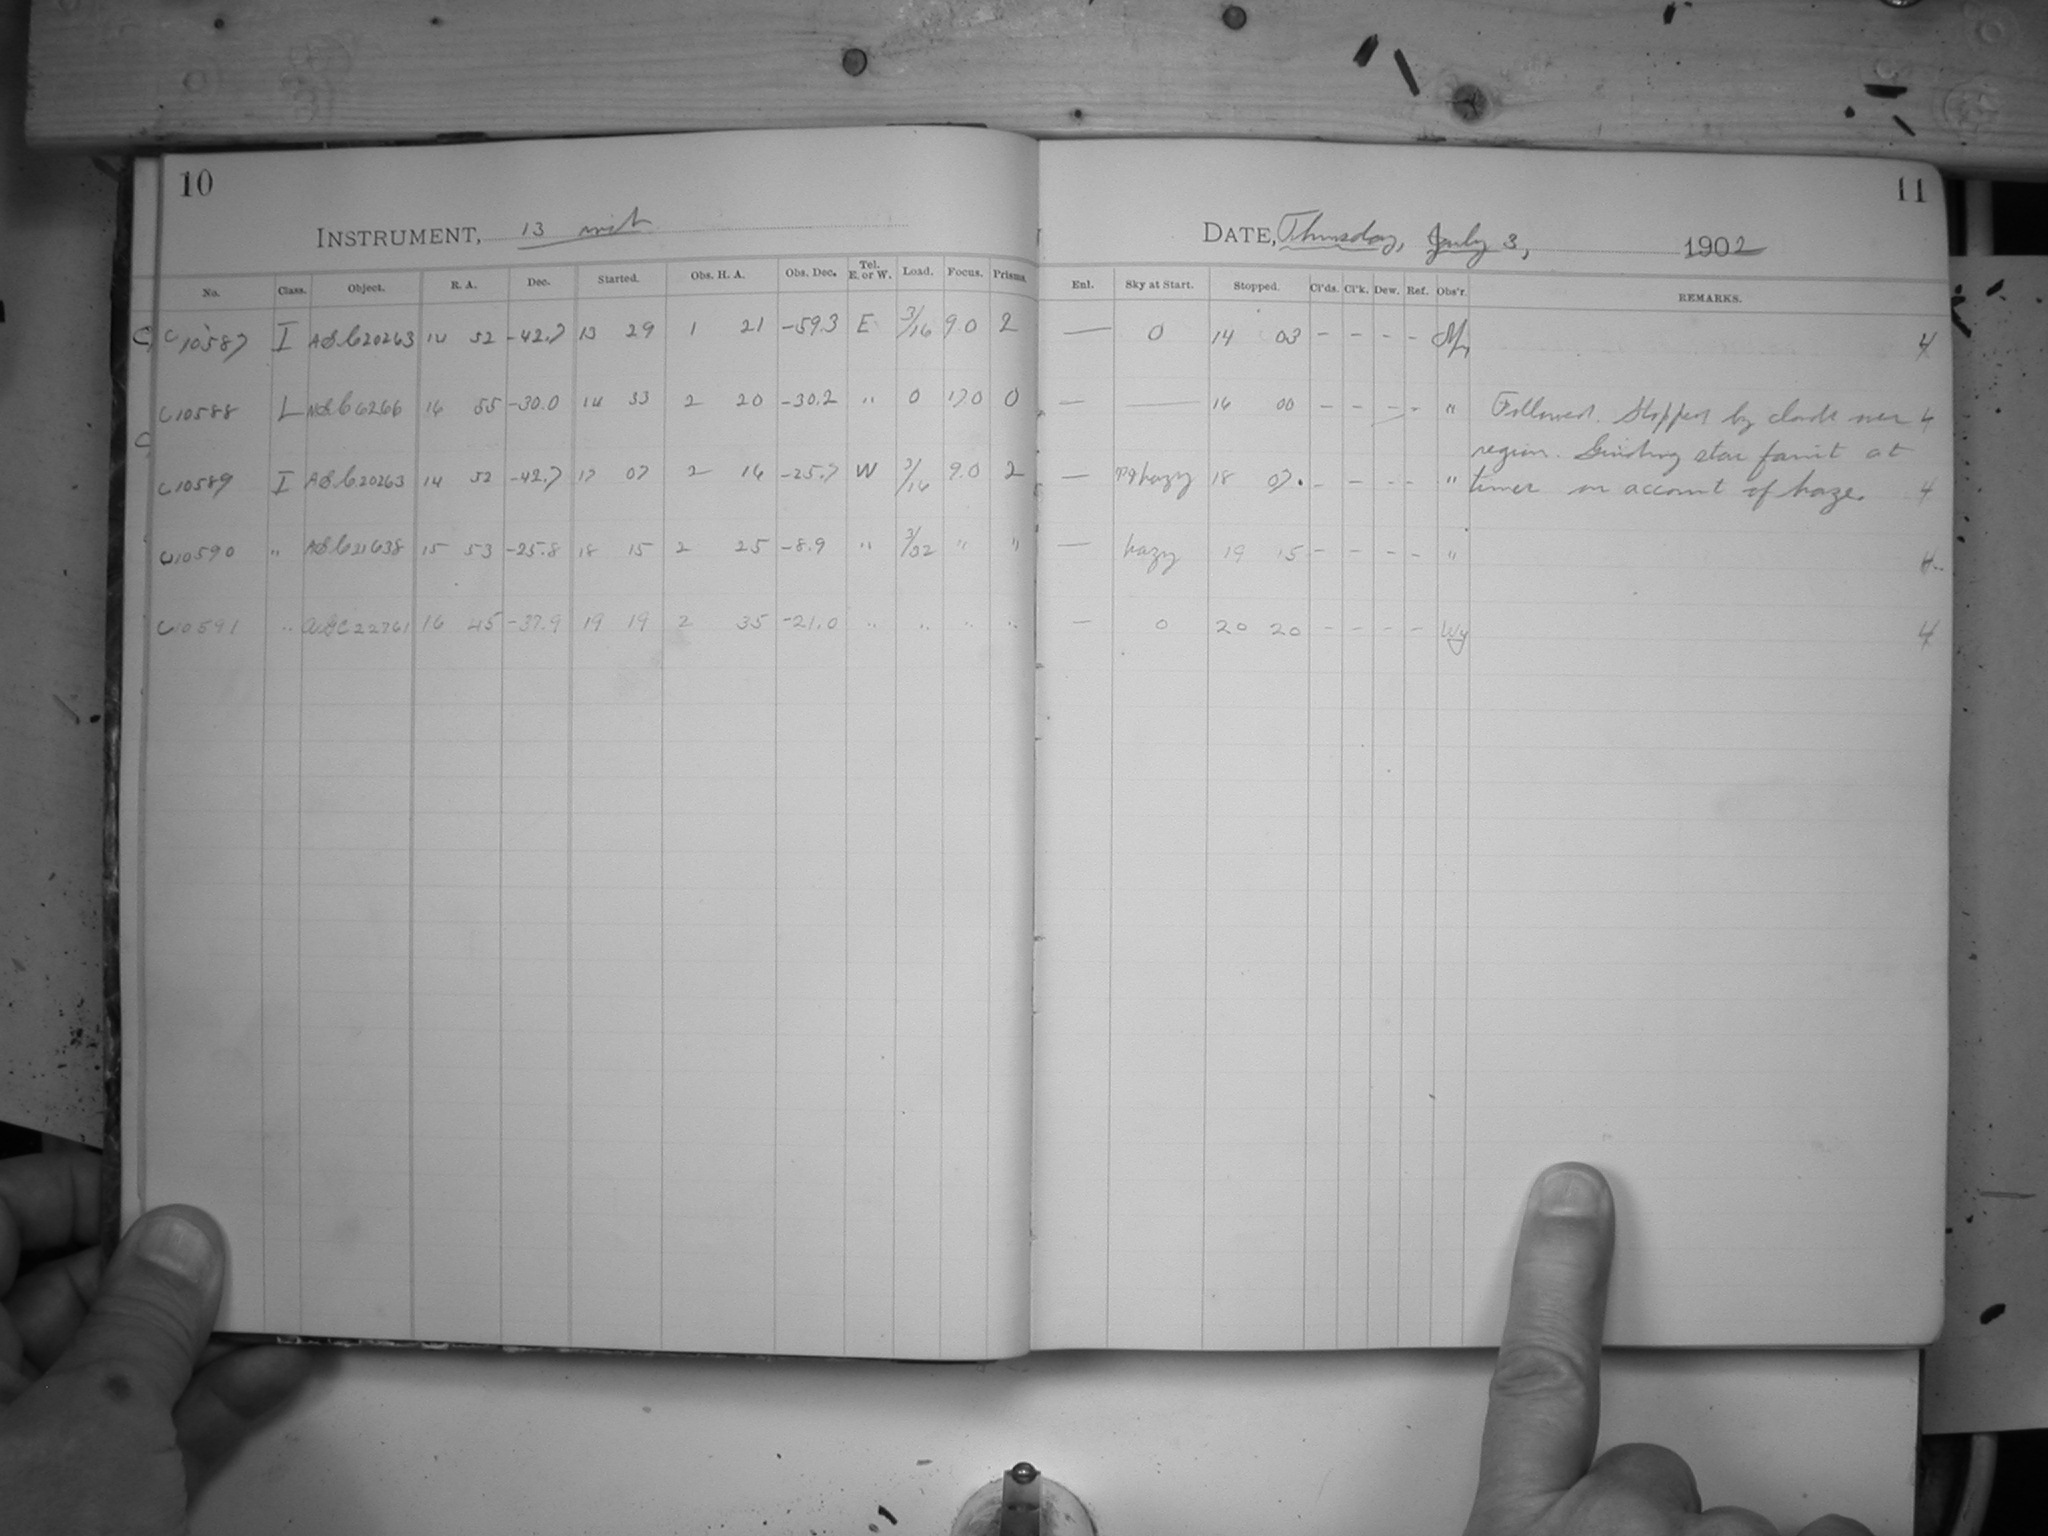 10
INSTRUMENT, 13 inch
No. Class. Object. R. A. Dec. Started. Obs. H. A. Obs. Dec. Tel. E. or W. Load. Focus. Prisms.
C10587 I AGC20263 14 52 -42.7 13 29 1 21 -59.3 E 3/16 9.0 2
C10588 L NGC6266 16 55 -30.0 14 33 2 20 -30.2 " 0 17.0 0
C10589 I AGC20263 14 52 -42.7 17 07 2 16 -25.7 W 3/16 9.0 2
C10590 " AGC21638 15 53 -25.8 18 15 2 25 -8.9 " 3/32 " "
C10591 " AGC22761 16 45 -37.9 19 19 2 35 -21.0 " " " "
11
DATE, Thursday, July 3, 1902
Enl. Sky at Start. Stopped. Cl'ds. Cl'k. Dew. Ref. Obs'r. REMARKS.
— 0 14 03 - - - - 4
— — 16 00 - - - - " Followed. Stopped by clouds over 4
region. Guiding star faint at
— hazy 18 07. - - - - " times on account of haze. 4
— hazy 19 15 - - - - " 4
— 0 20 20 - - - - Wy 4